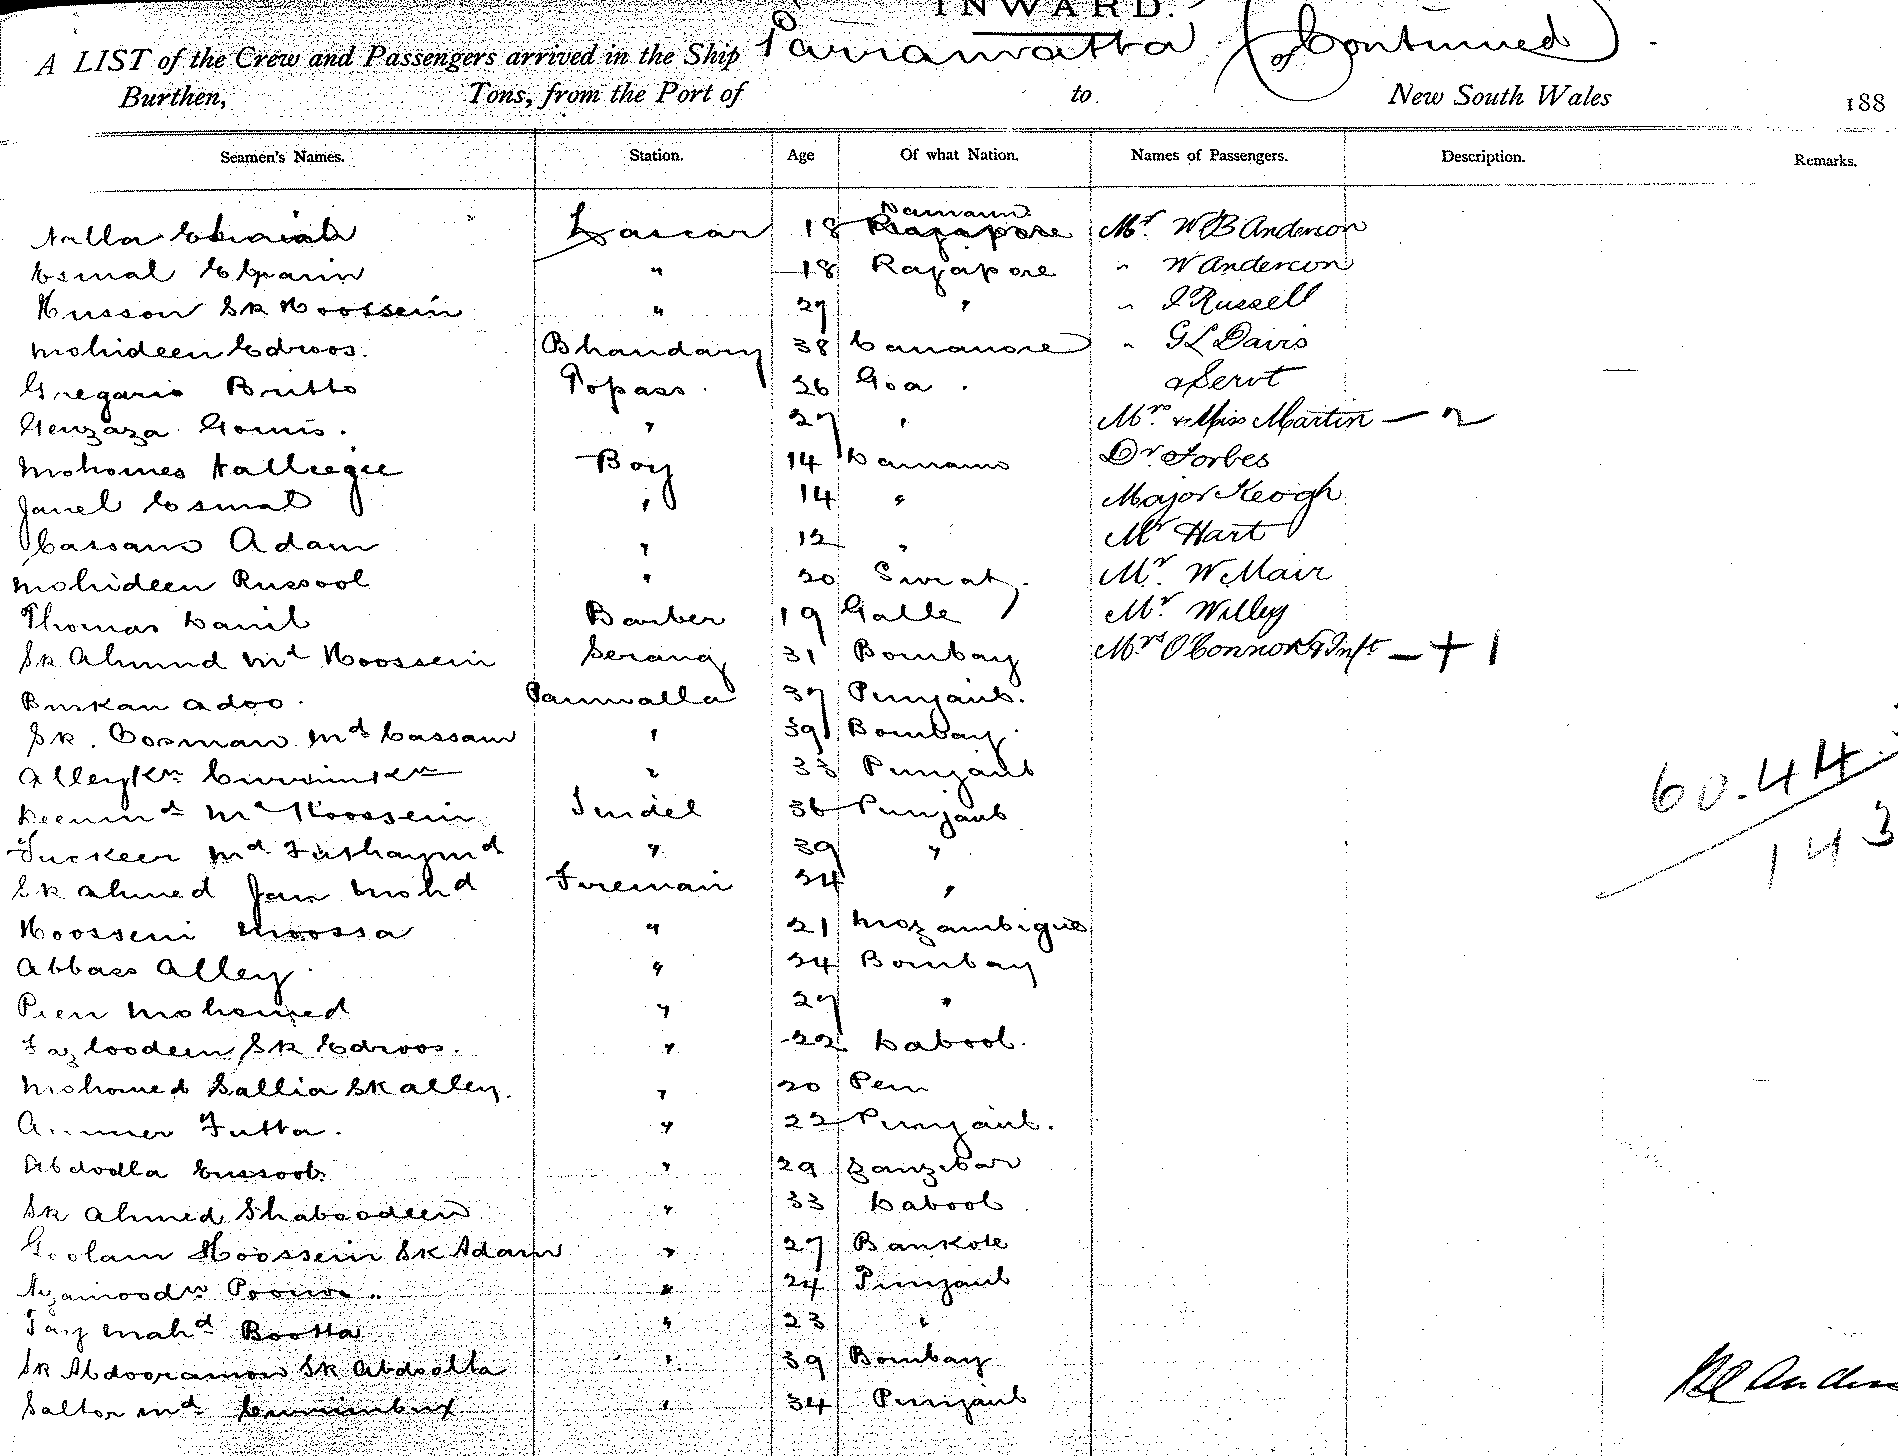 INWARD.
A LIST of the Crew and Passengers arrived in the Ship Parramatta (Continued) of
Burthen, Tons, from the Port of to New South Wales 188
Seamen's Names. Station. Age Of what Nation. Names of Passengers. Description. Remarks.
Lascar 18 Damaun Mr. W B Anderson
Esmal 18 Rajapore " W Anderson
Husson Sk Hoossein " 27 " " J Russell
Mohideen Edroos. Bhandary 38 Cananore " G L Davis
Gregario Britto Topass. 26 Goa. & Servt
Gomis. " 27 " Mrs. & Miss Martin — 2
Boy 14 Damaun Dr. Forbes
Esmal " 14 " Major Keogh
Cassam Adam " 12 " Mr Hart
Mohideen Russool " 20 Surat. Mr. W Mair
Thomas Danil Barber 19 Galle Mr Willey
Sk Ahmud Md Hoossein Serang 31 Bombay Mrs O'Connor & Inft — + 1
Burkan Adoo. Paniwalla 37 Punjaub.
Sk. Oosman Md Cassam " 39 Bombay.
" 33 Punjaub
60.44
Md Hoossein Tindel 36 Punjaub
143
Md " 39 "
Sk Ahmed Jan Mohd Fireman 24 "
Hoossein Moossa " 21 Mozambique
Abbass Alley. " 24 Bombay
Mohomed " 27 "
Sk Edroos. " 22 Dabool.
Mohomed Sallia Sk Alley. " 20 Pen
Futta. " 22 Punjaub.
Abdoolla Eussoob " 29 Zanzibar
Sk Ahmed Shaboodeen " 33 Dabool
Goolam Hoossein Sk Adam " 27 Bankote
" 24 Punjaub
Mahd Bootta " 23 "
Sk Abdooramon Sk Abdoolla " 39 Bombay
Md " 34 Punjaub